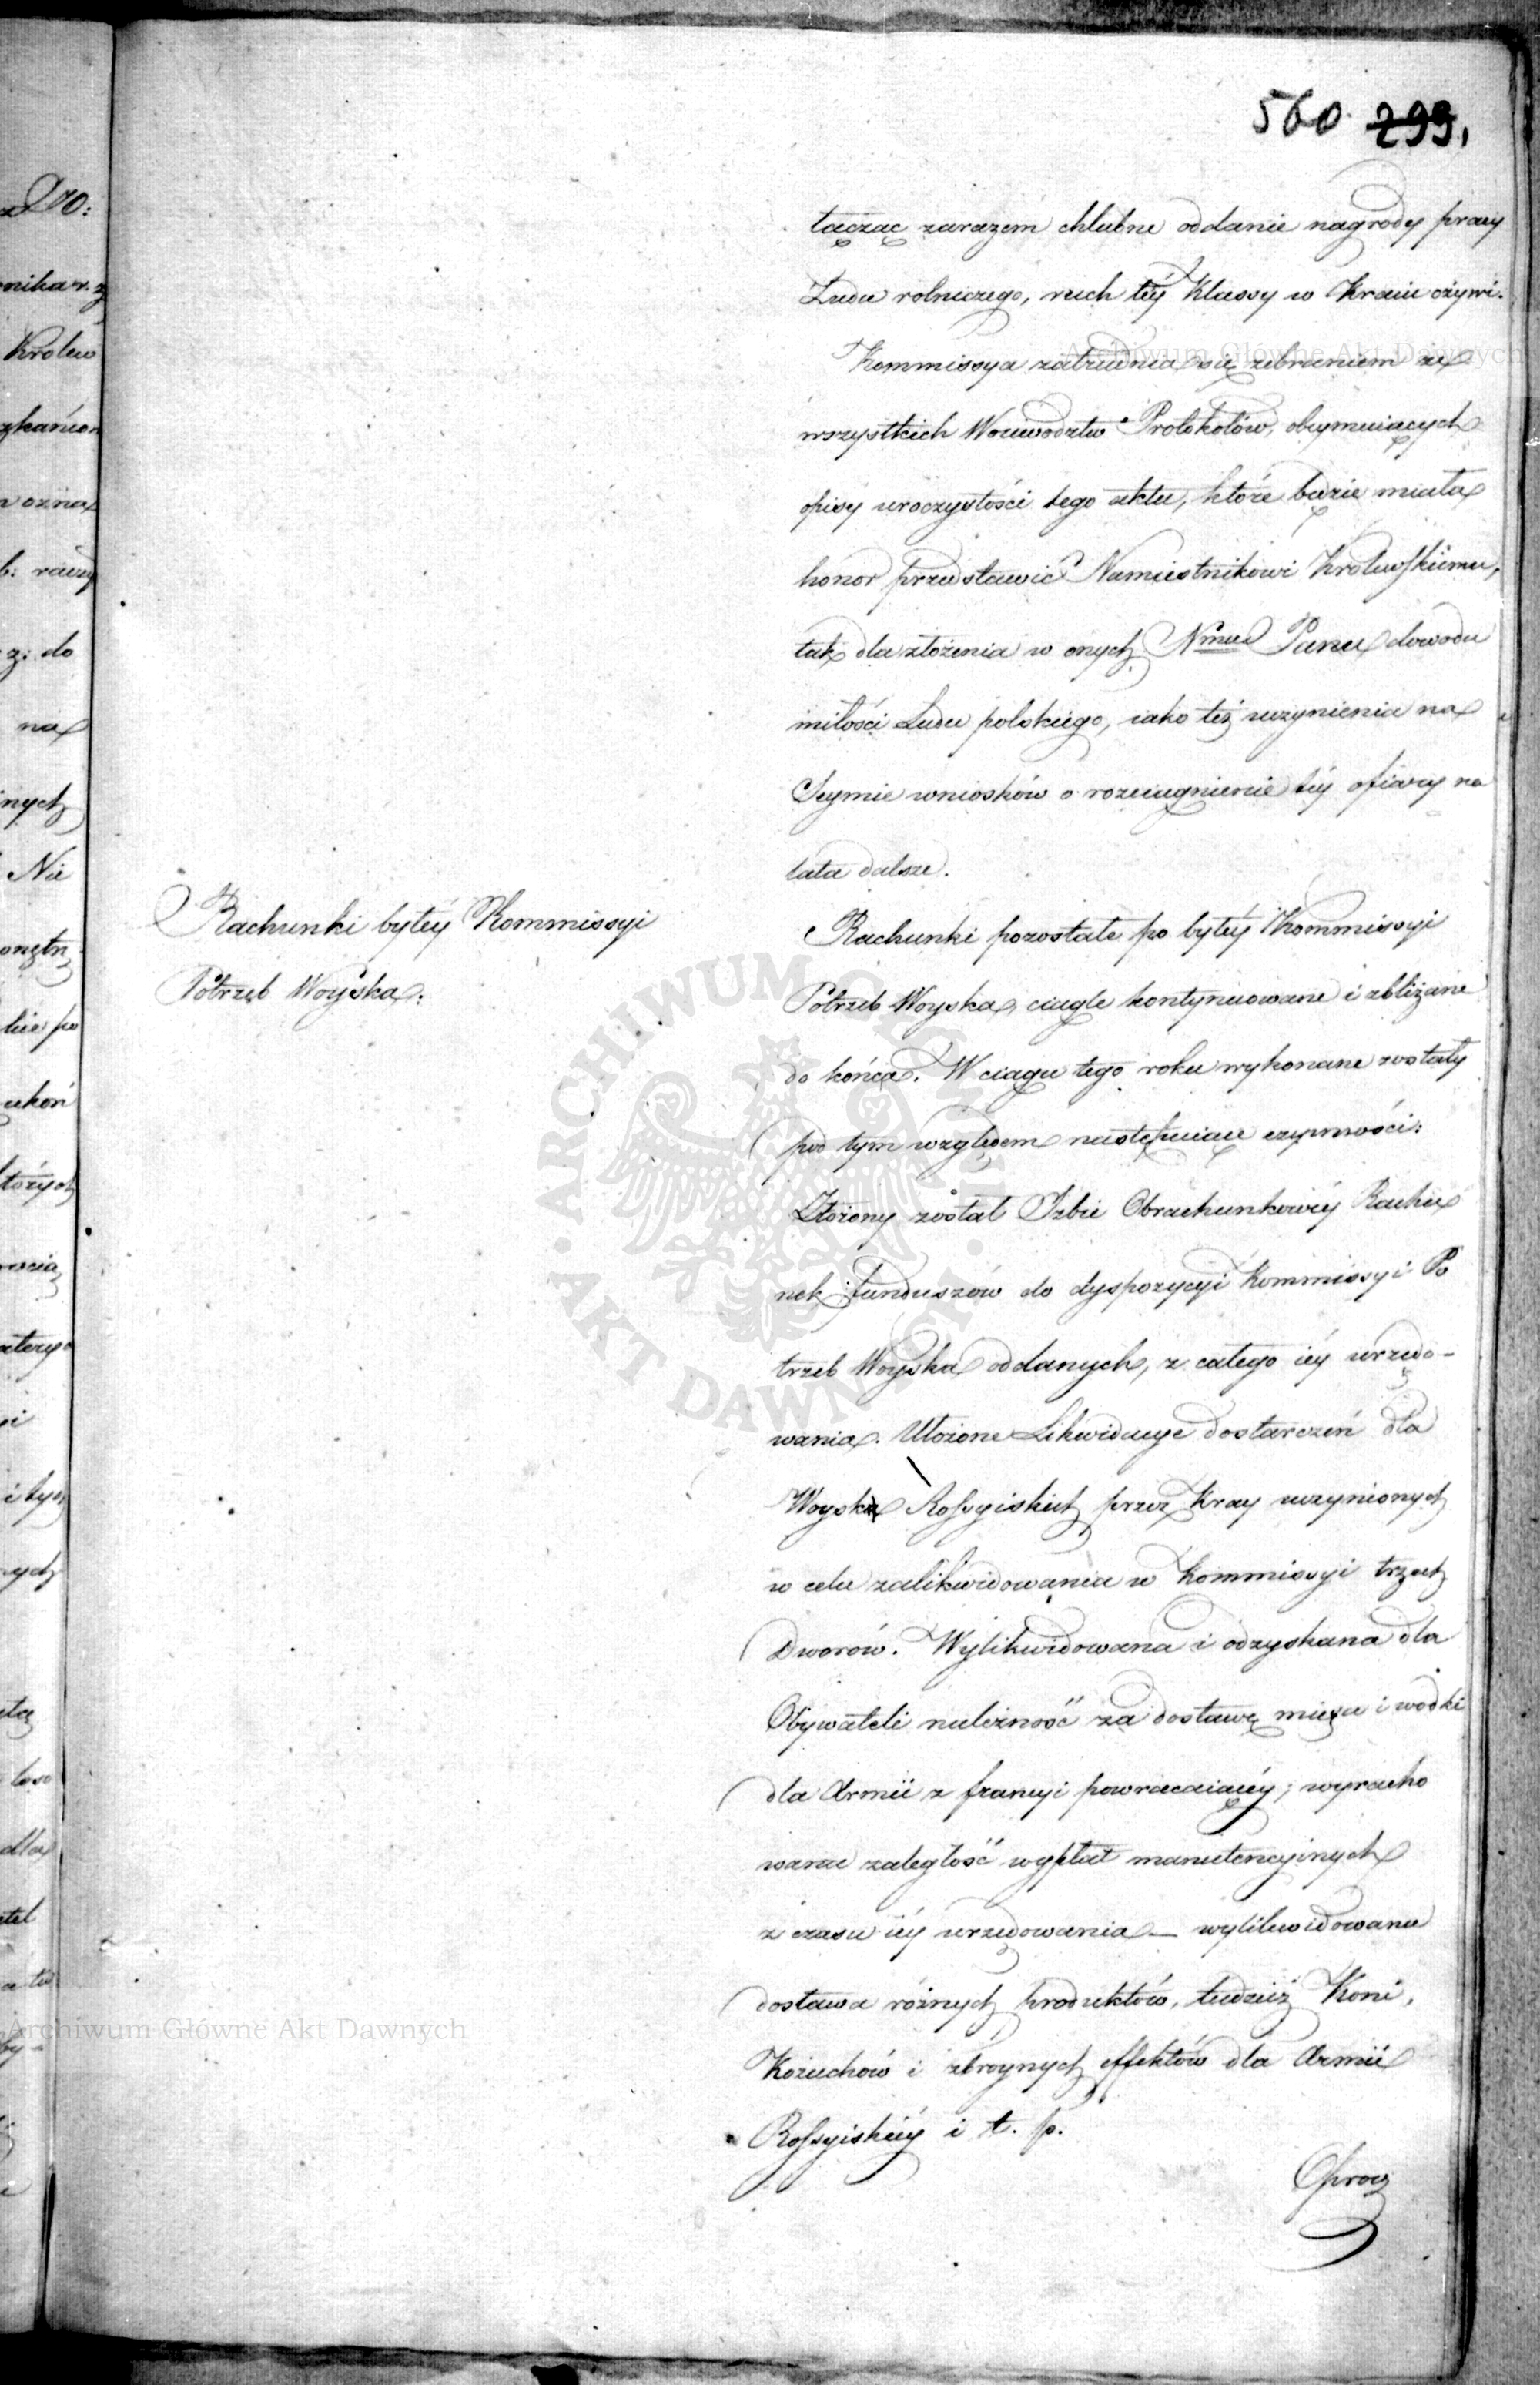 560 299.
łącząc zarazem chlubne oddanie nagrody pracy
Ludu rolniczego, ruch téy Klassy w Kraiu ożywi.
Kommissya zatrudnia się zebraniem ze
wszystkich Woiewodztw Protokołów, obeymuiących
opisy uroczystości tego aktu, które będzie miała
honor przedstawić Namiestnikowi Krolewskiemu,
tak dla złożenia w onych Nmu Panu dowodu
miłości Ludu polskiego, iako też uczynienia na
Seymie wniosków o rozciągnienie téy ofiary na
lata dalsze.
Rachunki byłéy Kommissyi
Potrzeb Woyska.
Rachunki pozostałe po byłéy Kommissyi
Potrzeb Woyska, ciągle kontynuowane i zbliżane
do końca. W ciągu tego roku wykonane zostały
pod tym względem następuiące czynności:
Złożony został Izbie Obrachunkowéy Rachu
nek funduszów do dyspozycyi Kommissyi Po
trzeb Woyska oddanych, z całego iéy urzędo-
wania. Ułożone Likwidacye dostarczeń dla
Woysk Rossyiskich przez Kray uczynionych
w celu zalikwidowania w Kommissyi trzech
Dworów. Wylikwidowana i odzyskana dla
Obywateli należność za dostawę mięsa i wodki
dla Armii z francyi powracaiącéy; wyracho
wana zaległość wypłat manutencyinych
z czasu iéy urzędowania — wylikwidowana
dostawa różnych produktów, tudzież Koni,
Kożuchów i zbroynych effektów dla Armii
Rossyiskiéy i t. p.
Oprocz
zDro:
Krolew
z: do
na
Nie
dla
Archiwum Główne Akt Dawnych
ARCHIWUM GŁÓWNE AKT DAWNYCH
Archiwum Główne Akt Dawnych